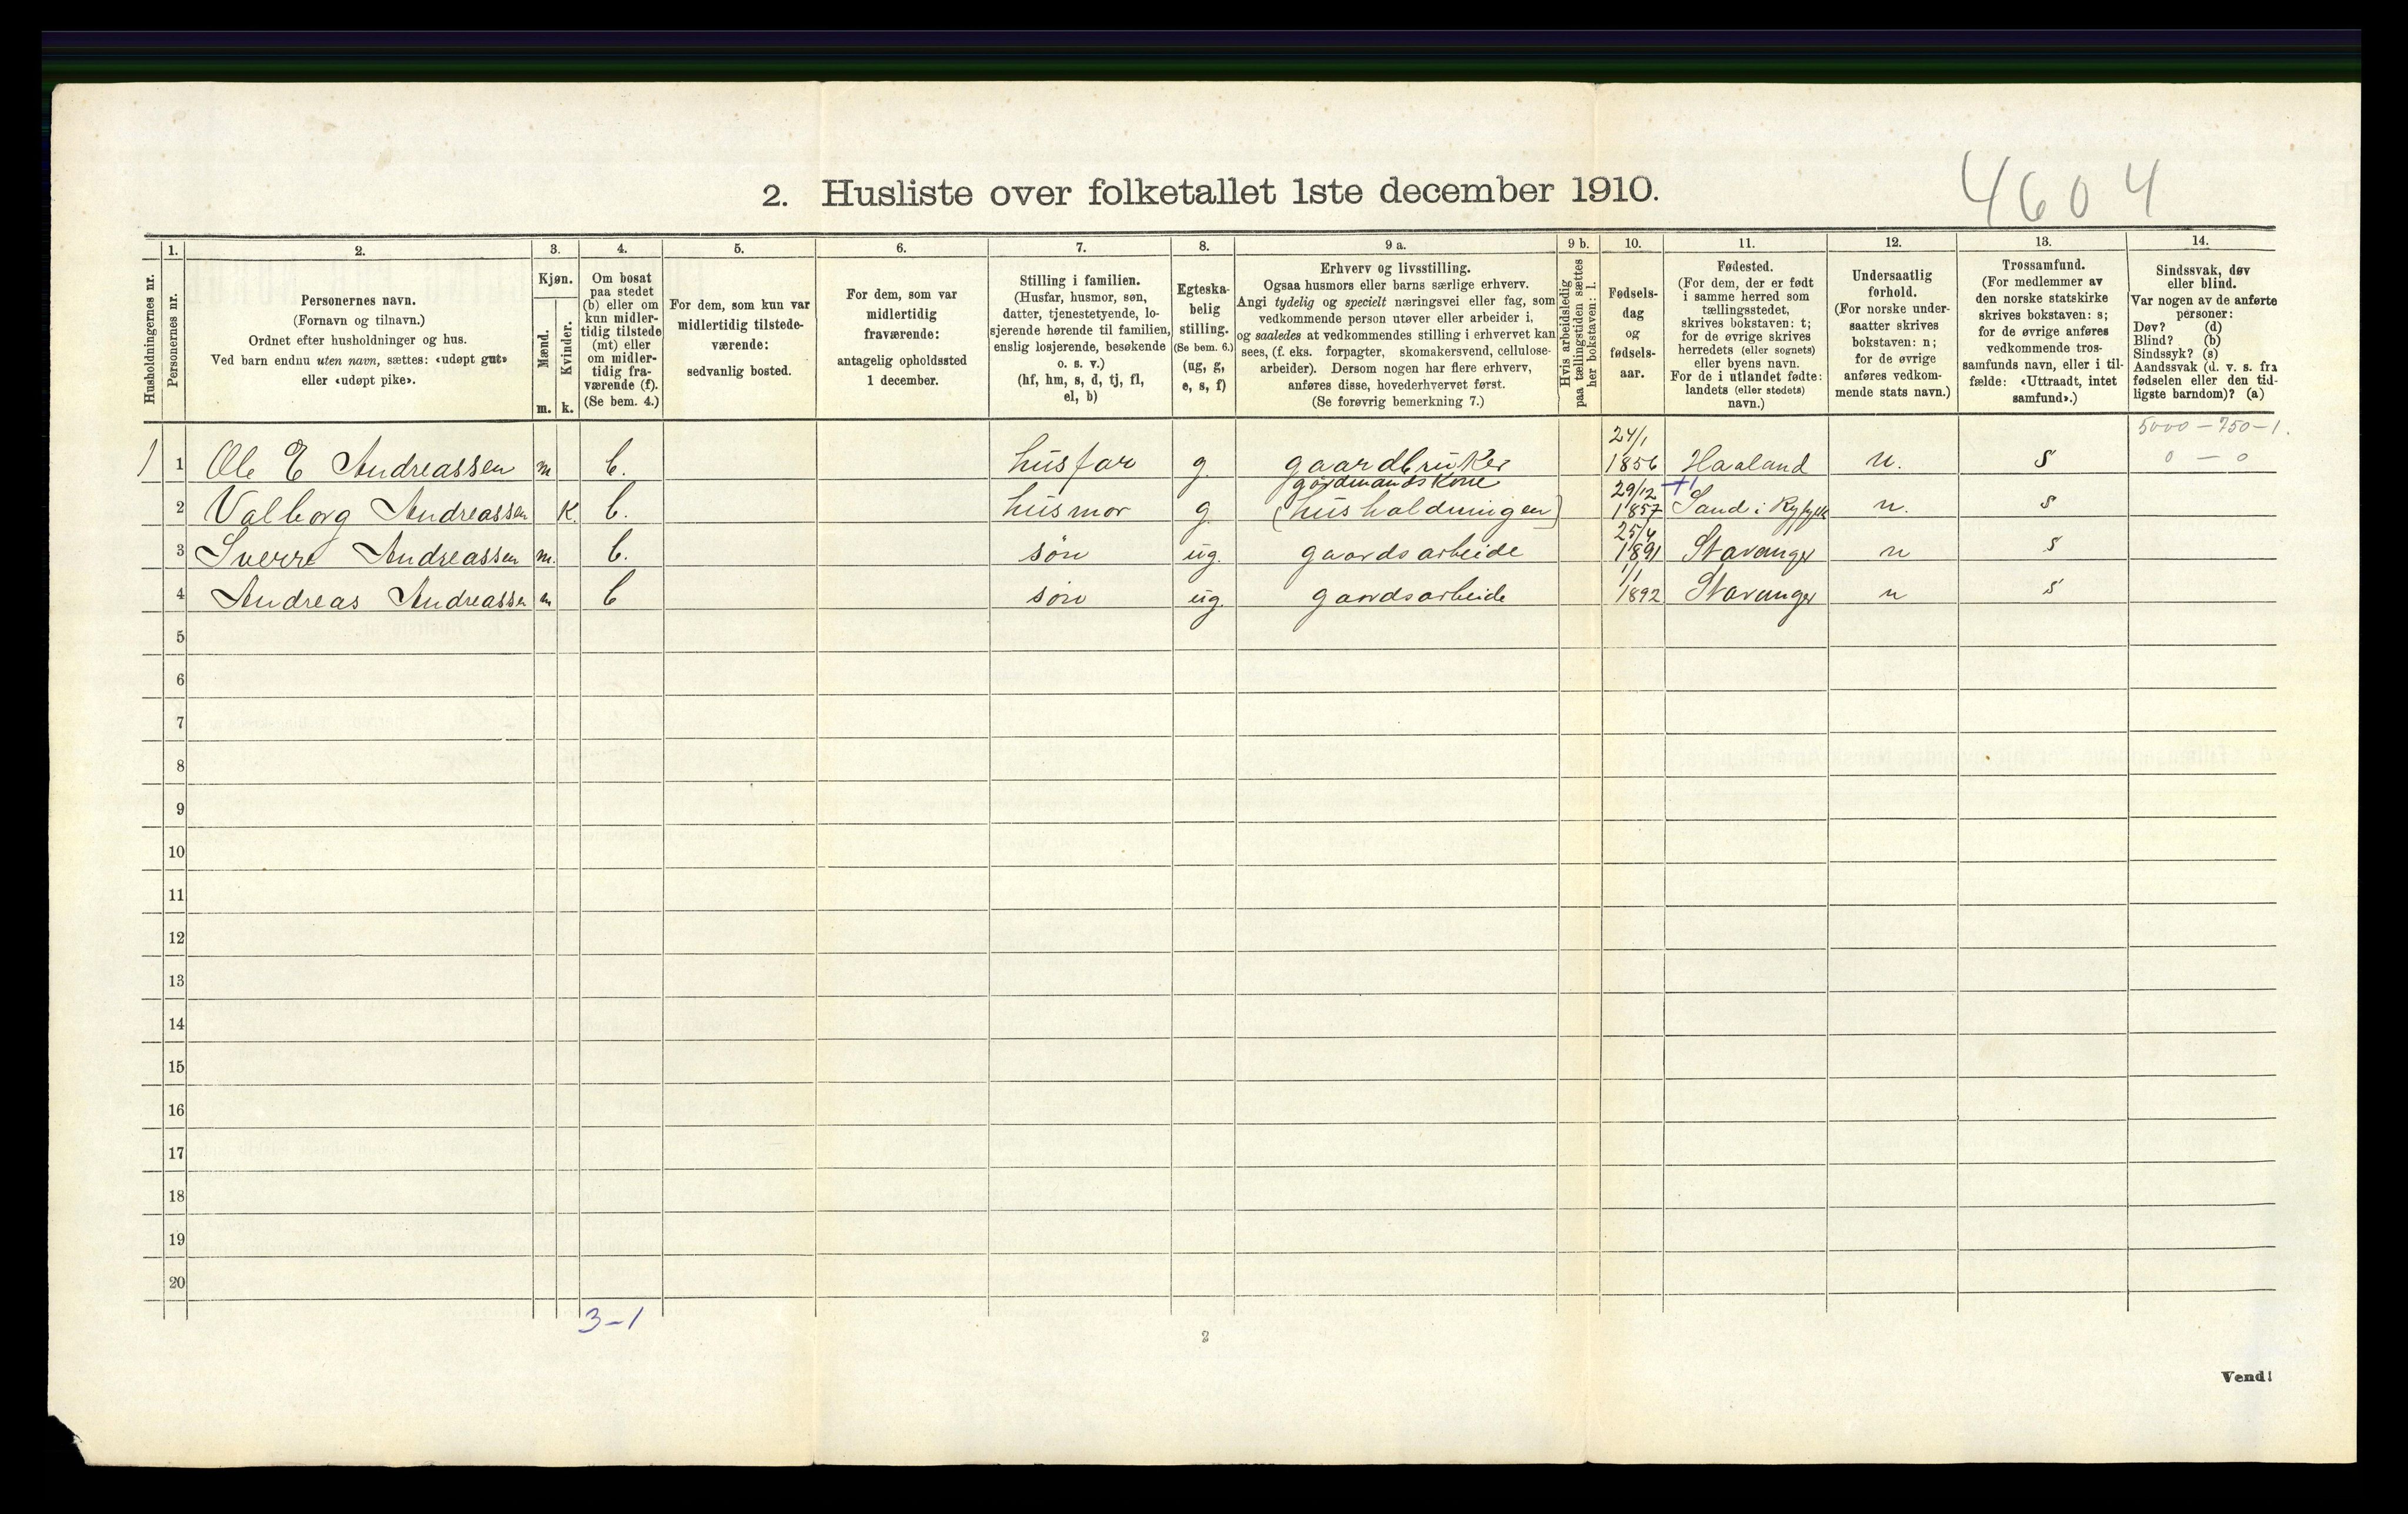 4604
2. Husliste over folketallet 1ste december 1910.
Husholdningernes nr.
1.
Personernes nr.
2.
Personernes navn.
(Fornavn og tilnavn.)
Ordnet efter husholdninger og hus.
Ved barn endnu uten navn, sættes: «udøpt gut»
eller «udøpt pike».
3.
Kjøn.
Mænd.
Kvinder.
m. k.
4.
Om bosat
paa stedet
(b) eller om
kun midler-
tidig tilstede
(mt) eller
om midler-
tidig fra-
værende (f).
(Se bem. 4.)
5.
For dem, som kun var
midlertidig tilstede-
værende:
sedvanlig bosted.
6.
For dem, som var
midlertidig
fraværende:
antagelig opholdssted
1 december.
7.
Stilling i familien.
(Husfar, husmor, søn,
datter, tjenestetyende, lo-
sjerende hørende til familien,
enslig losjerende, besøkende
o. s. v.)
(hf, hm, s, d, tj, fl,
el, b)
8.
Egteska-
belig
stilling.
(Se bem. 6.)
(ug, g,
e, s, f)
9 a.
Erhverv og livsstilling.
Ogsaa husmors eller barns særlige erhverv.
Angi tydelig og specielt næringsvei eller fag, som
vedkommende person utøver eller arbeider i,
og saaledes at vedkommendes stilling i erhvervet kan
sees, (f. eks. forpagter, skomakersvend, cellulose-
arbeider). Dersom nogen har flere erhverv,
anføres disse, hovederhvervet først.
(Se forøvrig bemerkning 7.)
9 b.
Hvis arbeidsledig
paa tællingstiden sættes
her bokstaven: l.
10.
Fødsels-
dag
og
fødsels-
aar.
11.
Fødested.
(For dem, der er født
i samme herred som
tællingsstedet,
skrives bokstaven: t;
for de øvrige skrives
herredets (eller sognets)
eller byens navn.
For de i utlandet fødte:
landets (eller stedets)
navn.)
12.
Undersaatlig
forhold.
(For norske under-
saatter skrives
bokstaven: n;
for de øvrige
anføres vedkom-
mende stats navn.)
13.
Trossamfund.
(For medlemmer av
den norske statskirke
skrives bokstaven: s;
for de øvrige anføres
vedkommende tros-
samfunds navn, eller i til-
fælde: «Uttraadt, intet
samfund».)
14.
Sindssvak, døv
eller blind.
Var nogen av de anførte
personer:
Døv? (d)
Blind? (b)
Sindssyk? (s)
Aandssvak (d. v. s. fra
fødselen eller den tid-
ligste barndom)? (a)
5000 - 750 - 1.
0 - 0
1 1 Ole E Andreassen m b. husfar g. gaardbruker 24/1 1856 Haaland n. s
gordmandskone
2 Valborg Andreassen K. b. husmor g. (husholdningen) 29/12 1857 +1 Sand i Ryfylke n. s
3 Sverre Andreassen m. b. søn ug. gaardsarbeide 25/4 1891 Stavanger n s
4 Andreas Andreassen m b søn ug. gaardsarbeide 1/1 1892 Stavanger n s
5
6
7
8
9
10
11
12
13
14
15
16
17
18
19
20
3-1
2
Vend!